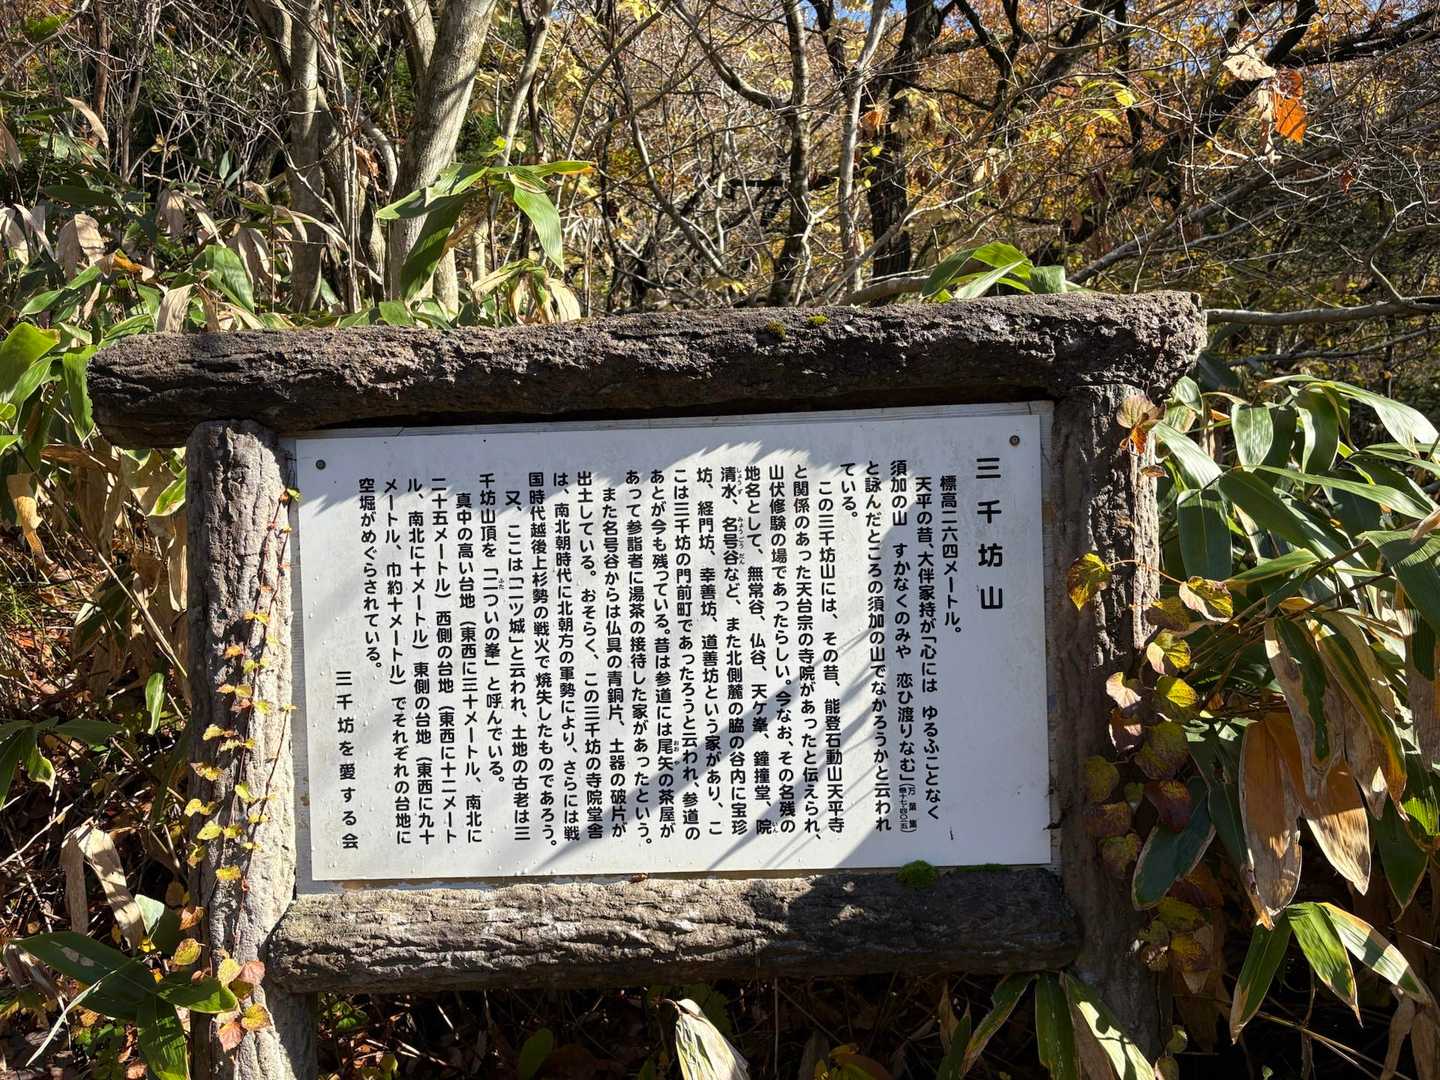 三千坊山
標高二六四メートル。
天平の昔、大伴家持が「心には ゆるふことなく
須加の山 すかなくのみや 恋ひ渡りなむ」(万葉集 巻十七・四〇一五)
と詠んだところの須加の山でなかろうかと云われ
ている。
この三千坊山には、その昔、能登石動山天平寺
と関係のあった天台宗の寺院があったと伝えられ、
山伏修験の場であったらしい。今なお、その名残の
地名として、無常谷、仏谷、天ケ峯、鐘撞堂、院
清水、名号谷など、また北側麓の脇の谷内に宝珍
坊、経門坊、幸善坊、道善坊という家があり、こ
こは三千坊の門前町であったろうと云われ、参道の
あとが今も残っている。昔は参道には尾矢の茶屋が
あって参詣者に湯茶の接待した家があったという。
また名号谷からは仏具の青銅片、土器の破片が
出土している。おそらく、この三千坊の寺院堂舎
は、南北朝時代に北朝方の軍勢により、さらには戦
国時代越後上杉勢の戦火で焼失したものであろう。
又、ここは「二ツ城」と云われ、土地の古老は三
千坊山頂を「二ついの峯」と呼んでいる。
真中の高い台地(東西に三十メートル、南北に
二十五メートル)西側の台地(東西に十二メート
ル、南北に十メートル)東側の台地(東西に九十
メートル、巾約十メートル)でそれぞれの台地に
空堀がめぐらされている。
三千坊を愛する会